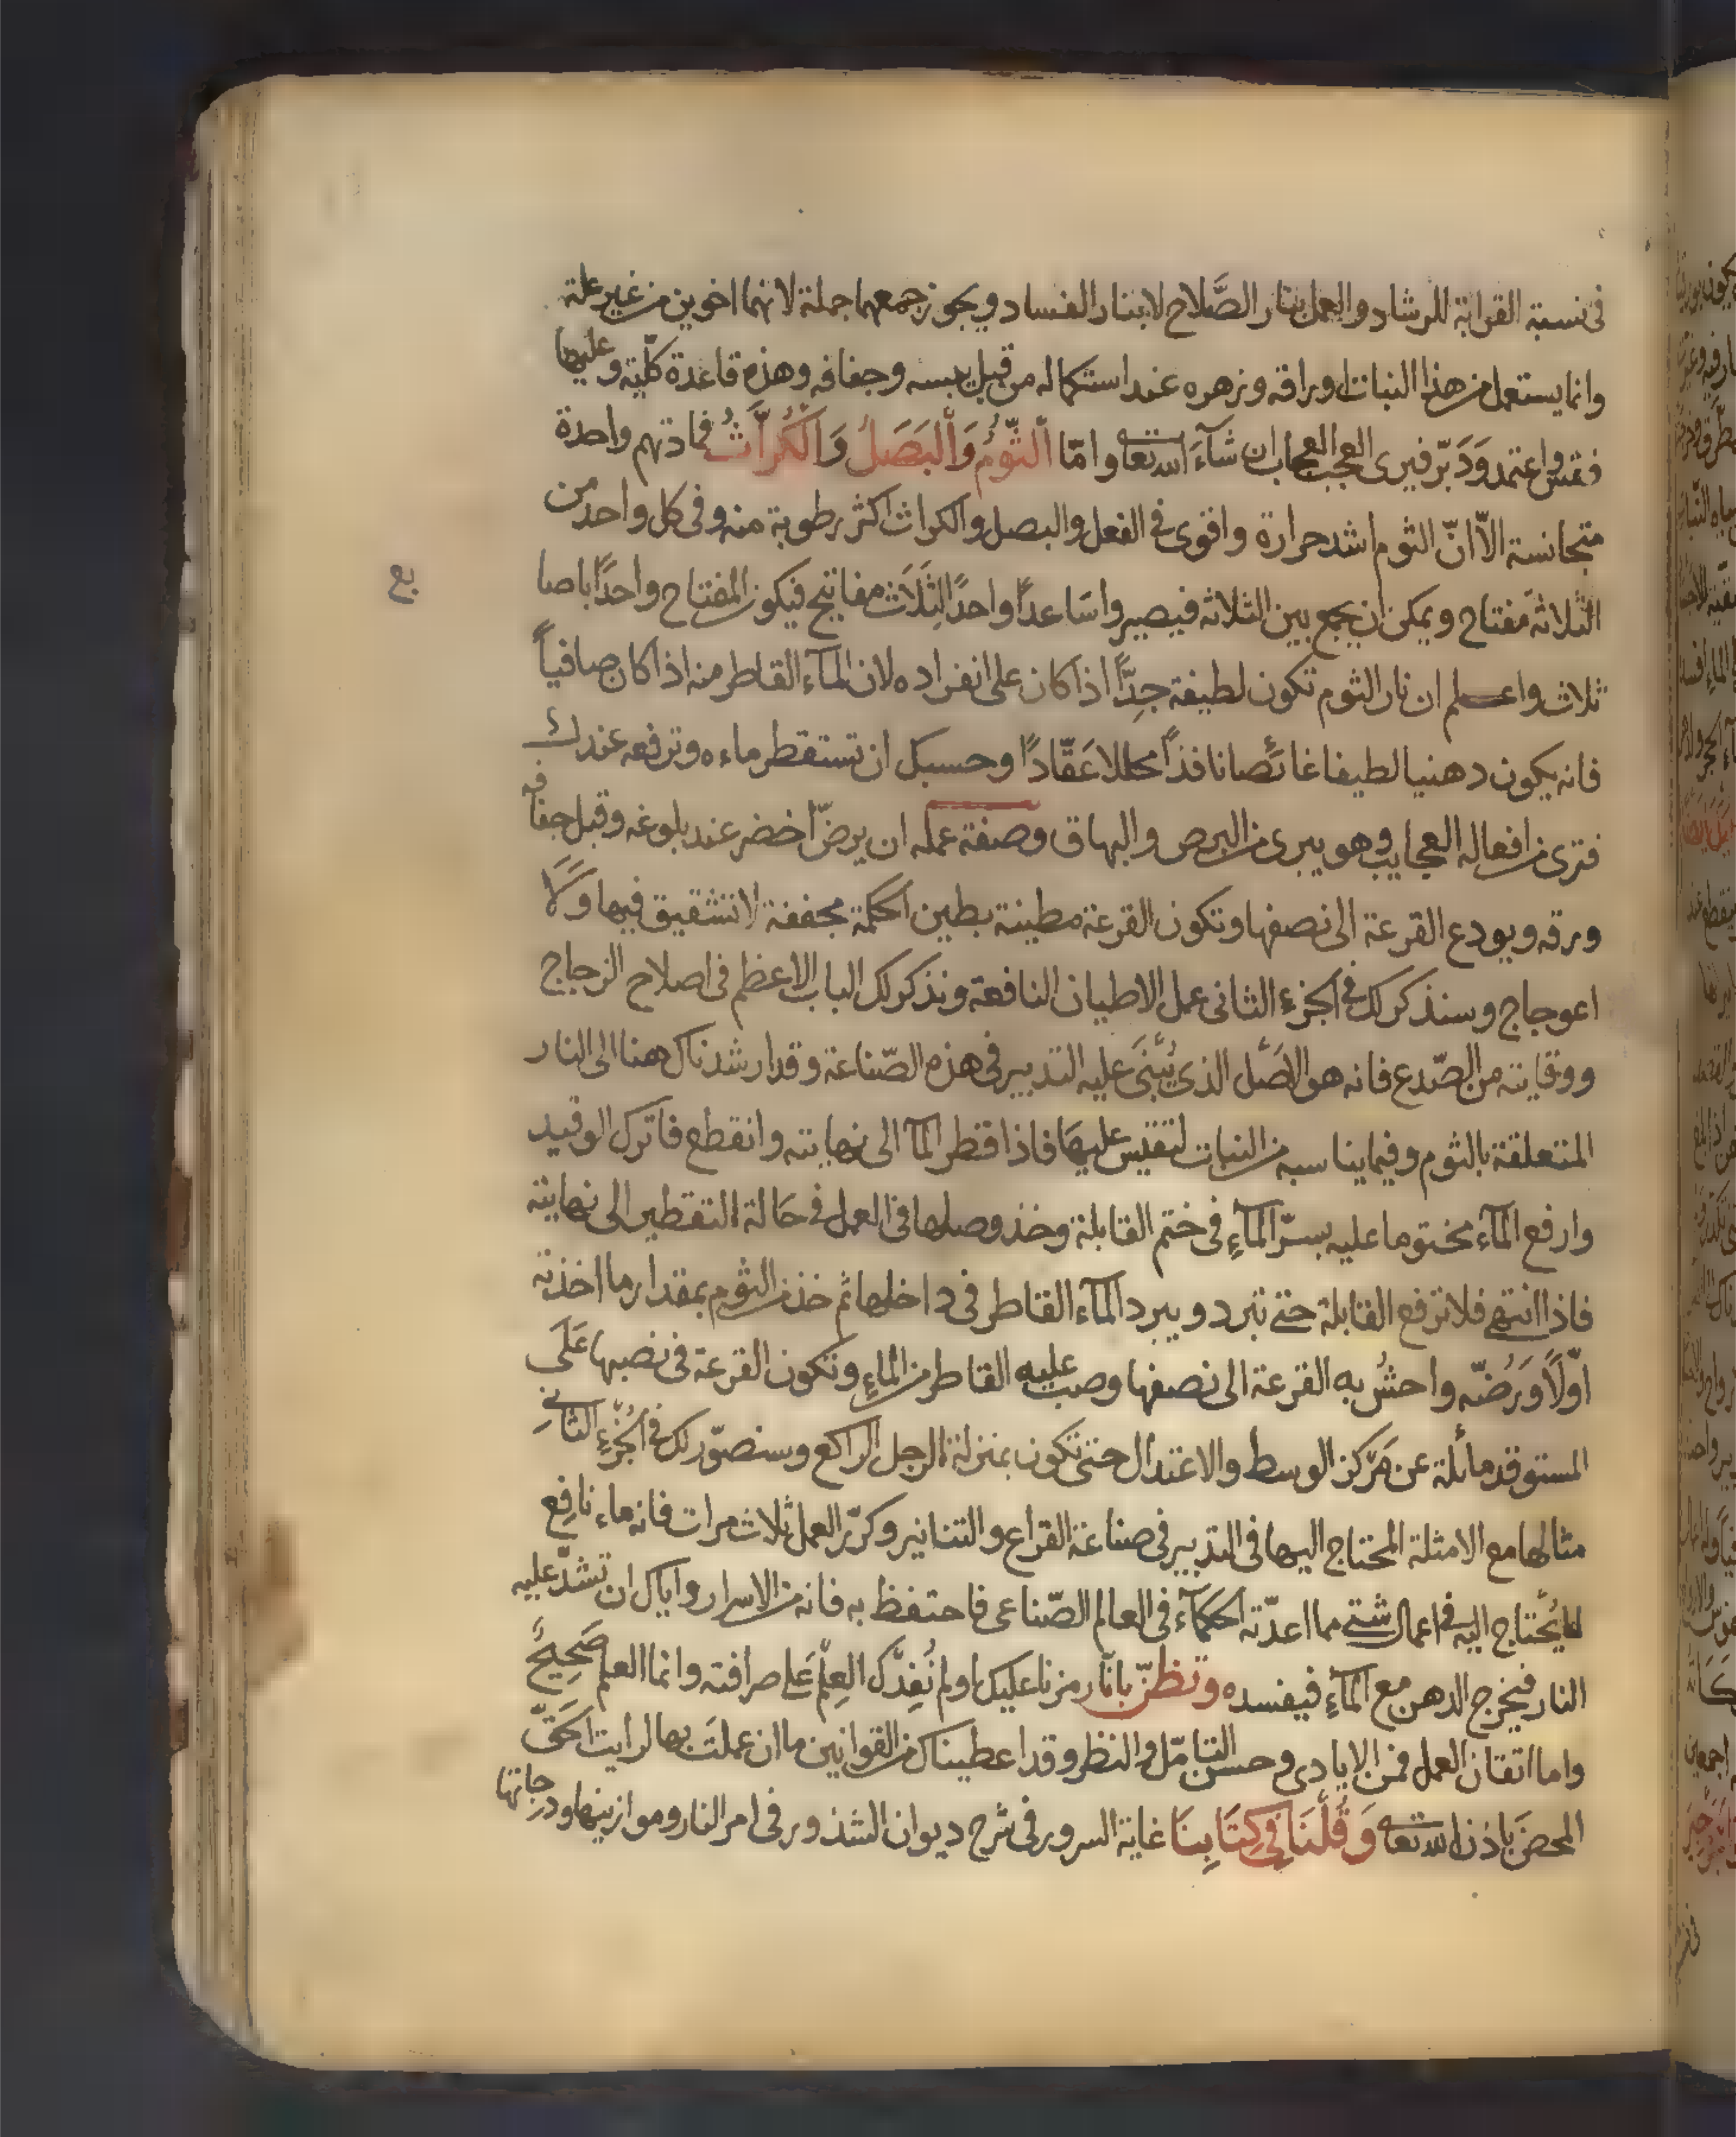 في نسبة القرابة للرشاد والعمل بنار الصَّلاح لا بنار الفساد ويجوز جمعهما جملة لانهما اخوين من غير علة
وانما يستعمل من هذا النبات اوراقه وزهره عند استكماله من قبل يبسه وجفافه وهذه قاعدة كلّية وعليها
فقس واعتمد وَدَبّر فيرى العجب العجاب ان شآءَ الله تعا وامّا اَلثّوُمُ وَاَلْبَصَلُ وَاَلْكُرَّاثُ فمادتهم واحدة
متجانسة الاّ انّ الثوم اشد حرارة واقوى في الفعل والبصل والكراث اكثر رطوبة منه وفى كل واحد من
الثلاثة مفتاح ويمكن ان يجمع بين الثلاثه فيصيروا سَاعداً واحدًا لِثَلَاث مفاتيح فيكون المفتاح واحدًا باصا
بع
ثلاث واعـلم ان نار الثوم تكون لطيفة جِدًّا اذا كان على انفراده لان المآء القاطر منه اذا كان صافياً
فانه يكون دهنيا لطيفا غائصا نافذاً محللا عَقّادًا وحسبك ان تستقطر ماءه وترفعه عندك
فترى من افعاله العجايب وهو يبرى من البرص والبهاق وصفة عمله ان يرضّ اخضر عند بلوغه وقبل جفافه
ورقه ويودع القرعة الى نصفها وتكون القرعة مطينة بطين الحكمة مجففة لا تشقيق فيها وَلَا
اعوجاج وسنذكر لك في الجزء الثانى عمل الاطيان النافعة ونذكر لك الباب الاعظم فى اصلاح الزجاج
ووقايته من الصّدع فانه هو الاصَل الذى يُبْنَى عليه التدبير فى هذه الصّناعة وقد ارشدناك ههنا الى النار
المتعلقة بالثوم وفيما يناسبه من النبات لتقيس عليها فاذا قطر المآ الى نهايته وانقطع فاترك الوقيد
وارفع المآء مختوما عليه بسرّ المآءِ فى ختم القابلة وخذ وصلها فى العمل فى حَالة التقطير الى نهايته
فاذا انتهى فلا ترفع القابلة حتى تبرد ويبرد المآء القاطر فى داخلها ثم خذ من الثوم بمقدار ما اخذته
اوّلاً وَرُضّه واحشُ به القرعة الى نصفها وصب عليه القاطر من الماءِ وتكون القرعة فى نصبها عَلَى
المستوقد مائلة عن مَرْكز الوسط والاعتدال حتى تكون بمنزلة الرجل الراكع وسنصوّر لك في الجُزْءِ الثانِى
مثالها مع الامثلة المحتاج اليها فى التدبير فى صناعة القراع والتنانير وكرّر العمل ثلاث مرات فانه ماء نافع
لما يُحتاج اليه فى اعمال شتى مما اعدّته الحكمآء فى العالم الصّناعى فاحتفظ به فانه من الاسرار واياك ان تشدّ عليه
النار فيخرج الدهن مع المآءِ فيفسده وتظنّ بانّا رمزنا عليك اولم نُفِدْك العِلْم عَلى صرافته وانما العلم صَحِيحٌ
واما اتقان العمل فمن الايادى وحسن التامّل والنظر وقد اعطيناك من القوانين ما ان عملتَ بها لرايت الحَقّ
المحضَ باذن الله تعا وَقُلْنَا فِى كِتَابِنَا غاية السرور فى شرح ديوان الشذور فى امر النار وموازينها ودرجاتها